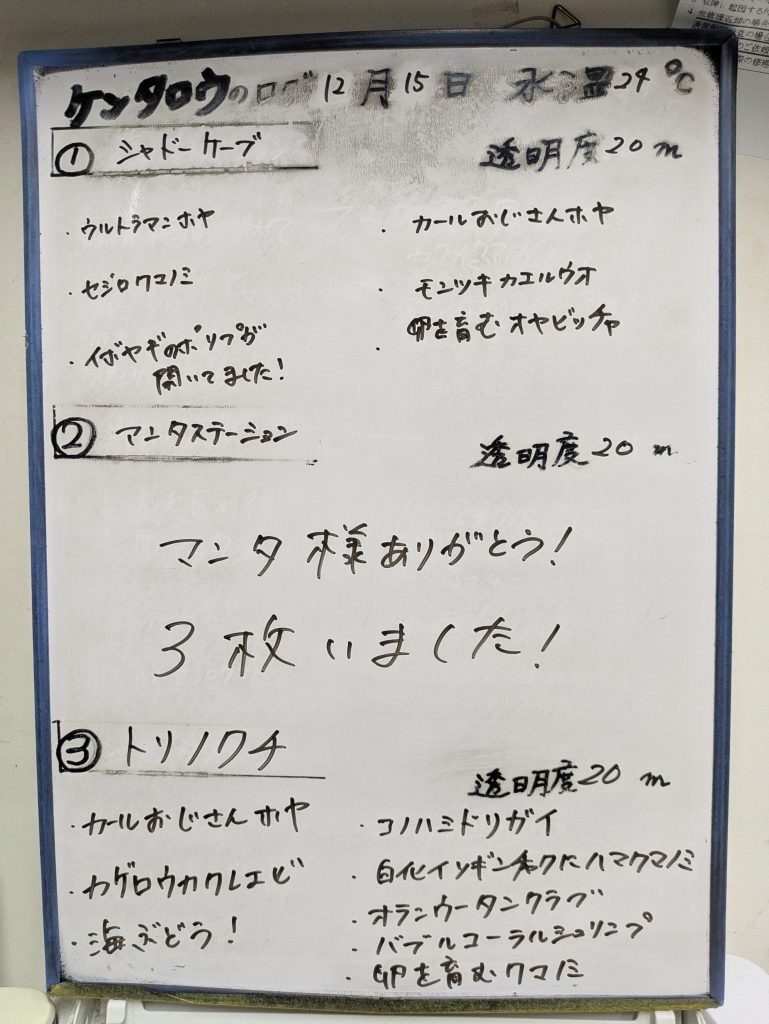 ケンタロウのログ 12月15日 水温24℃
① シャドーケーブ 透明度20m
・ウルトラマンホヤ
・セジロクマノミ
・イボヤギのポリプが
開いてました!
・カールおじさんホヤ
・モンツキカエルウオ
・卵を育むオヤビッチャ
② マンタステーション 透明度20m
マンタ様ありがとう!
3枚いました!
③ トリノクチ 透明度20m
・カールおじさんホヤ
・カゲロウカクレエビ
・海ぶどう!
・コノハミドリガイ
・白化イソギンチャクにハマクマノミ
・オランウータンクラブ
・バブルコーラルシュリンプ
・卵を育むクマノミ